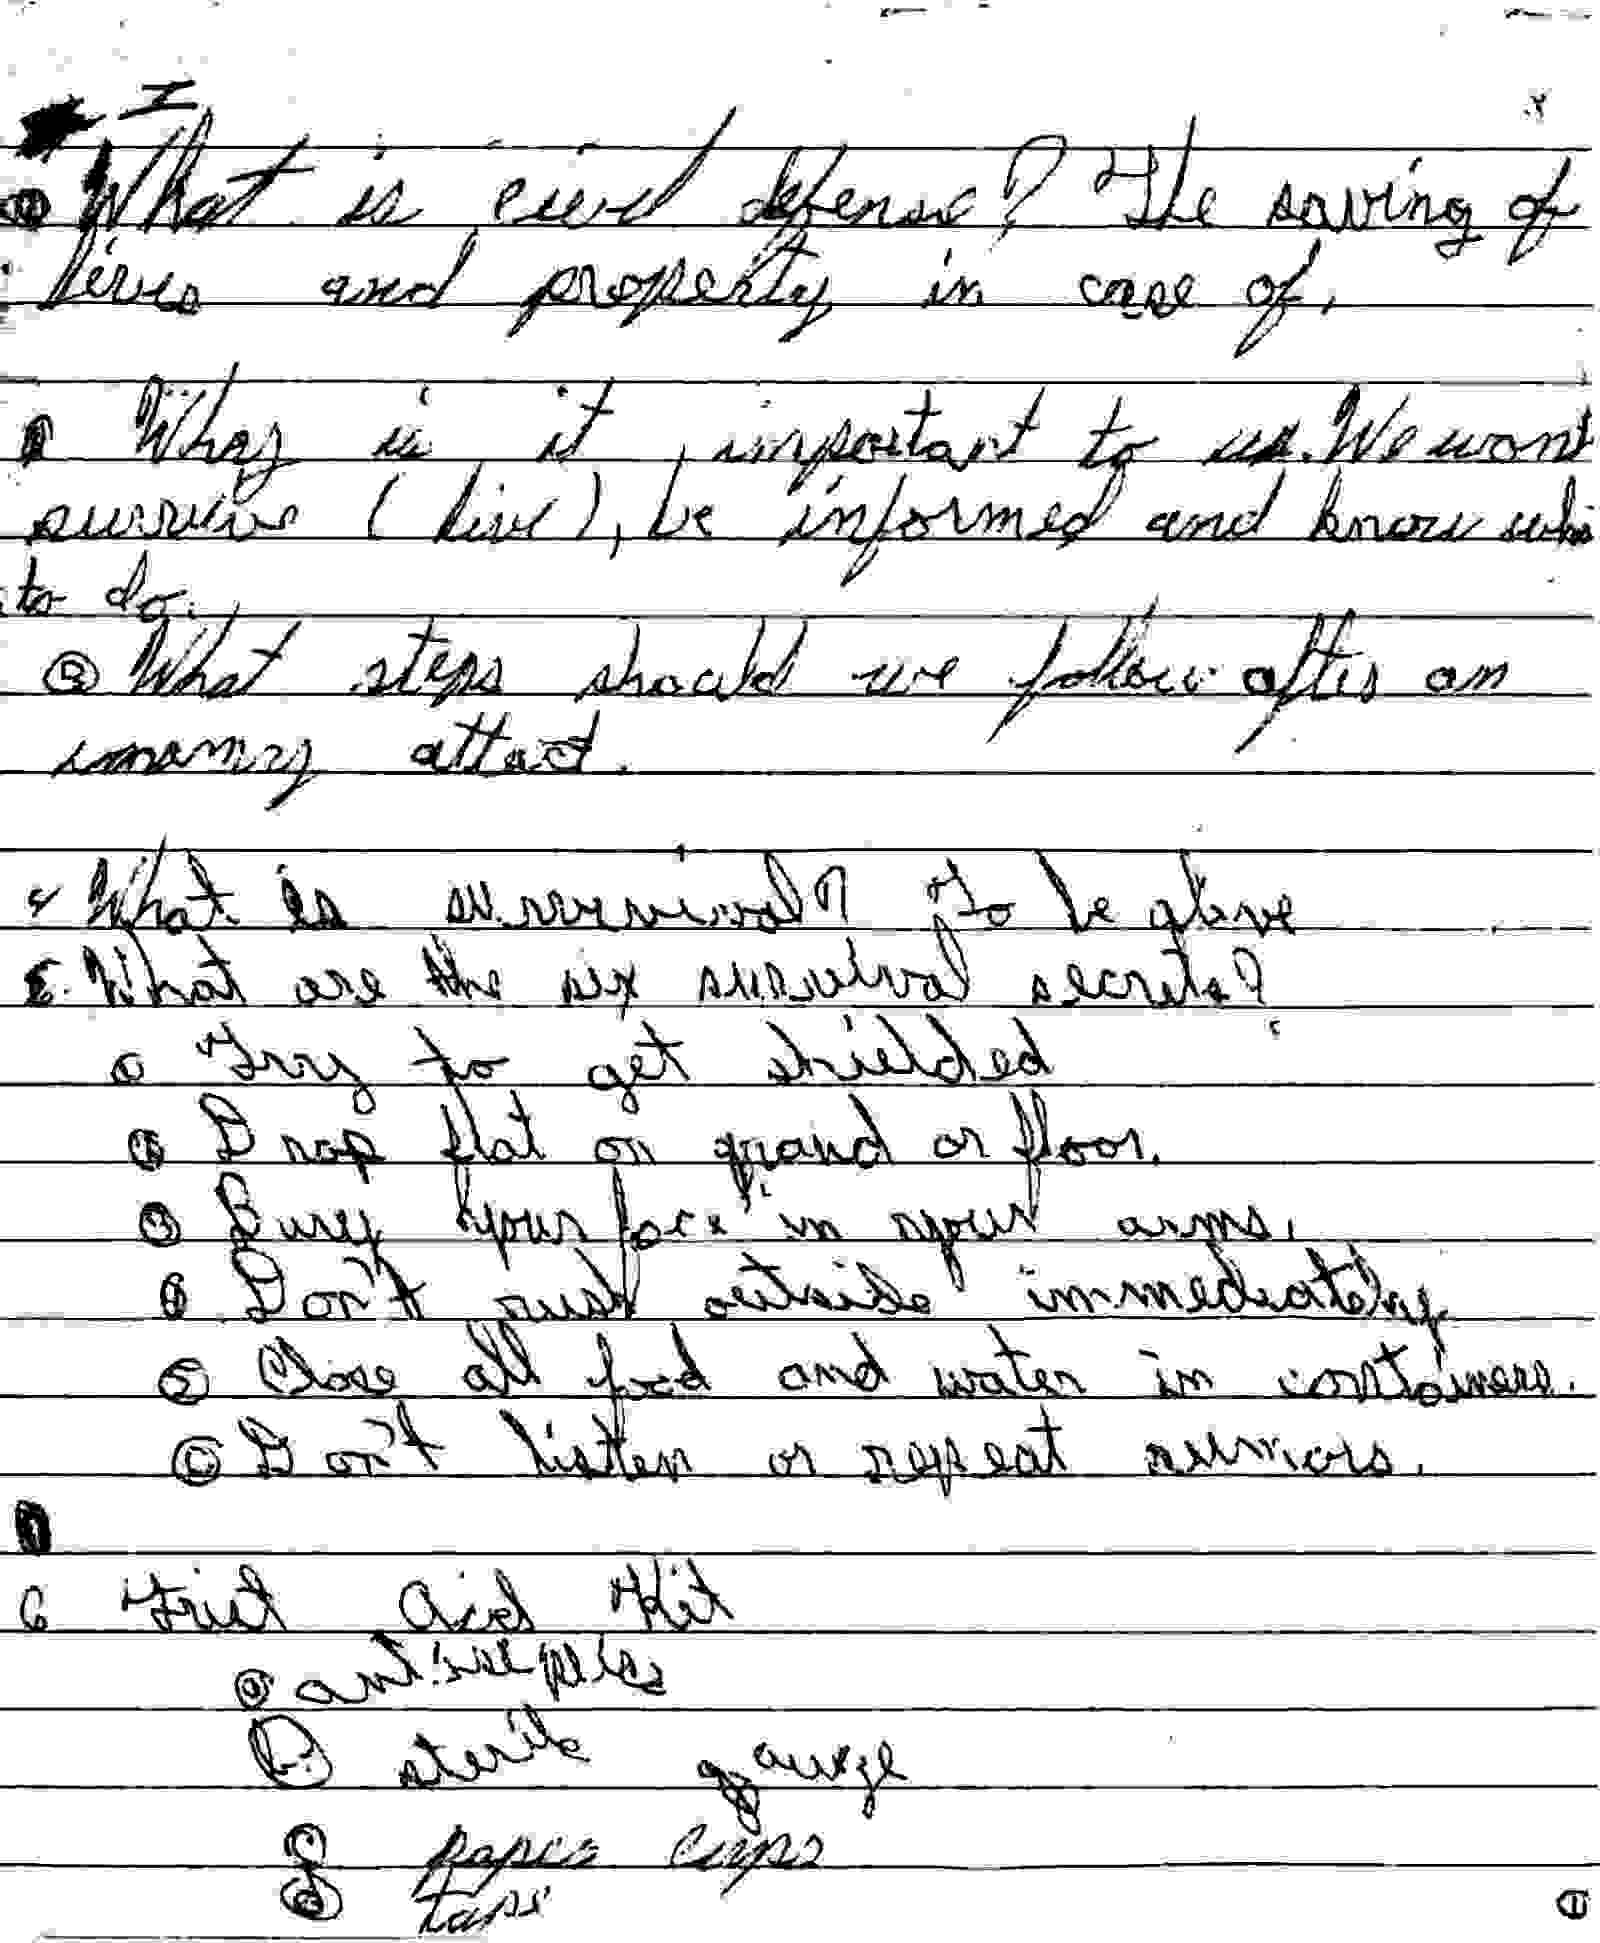 I
① What is civil defense? The saving of
lives and property in case of,
Why is it important to us. We want
survive (live), be informed and know
to do.
③ What steps should we follow after an
attact.
4 What is survival? To be alive
5. What are the six survival secrets?
a Try to get shielded
Drop flat on ground or floor.
Bury your face in your arms.
Don't rush outside immediately
Close all food and water in containers.
Don't listen or repeat rumors.
6 Frist Aid Kit
ⓐ
ⓑ steril gauze
paper cups
tape
①